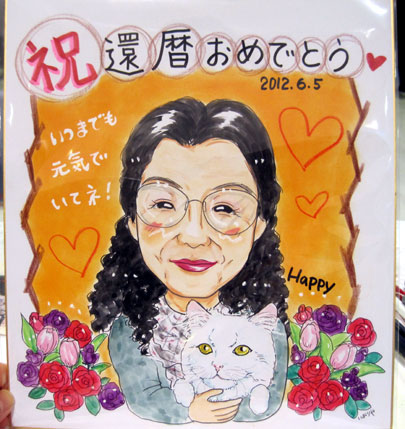 祝還暦おめでとう
2012.6.5
いつまでも
元気で
いてネ!
Happy